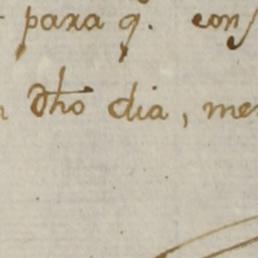 para q. cons
dho dia, me